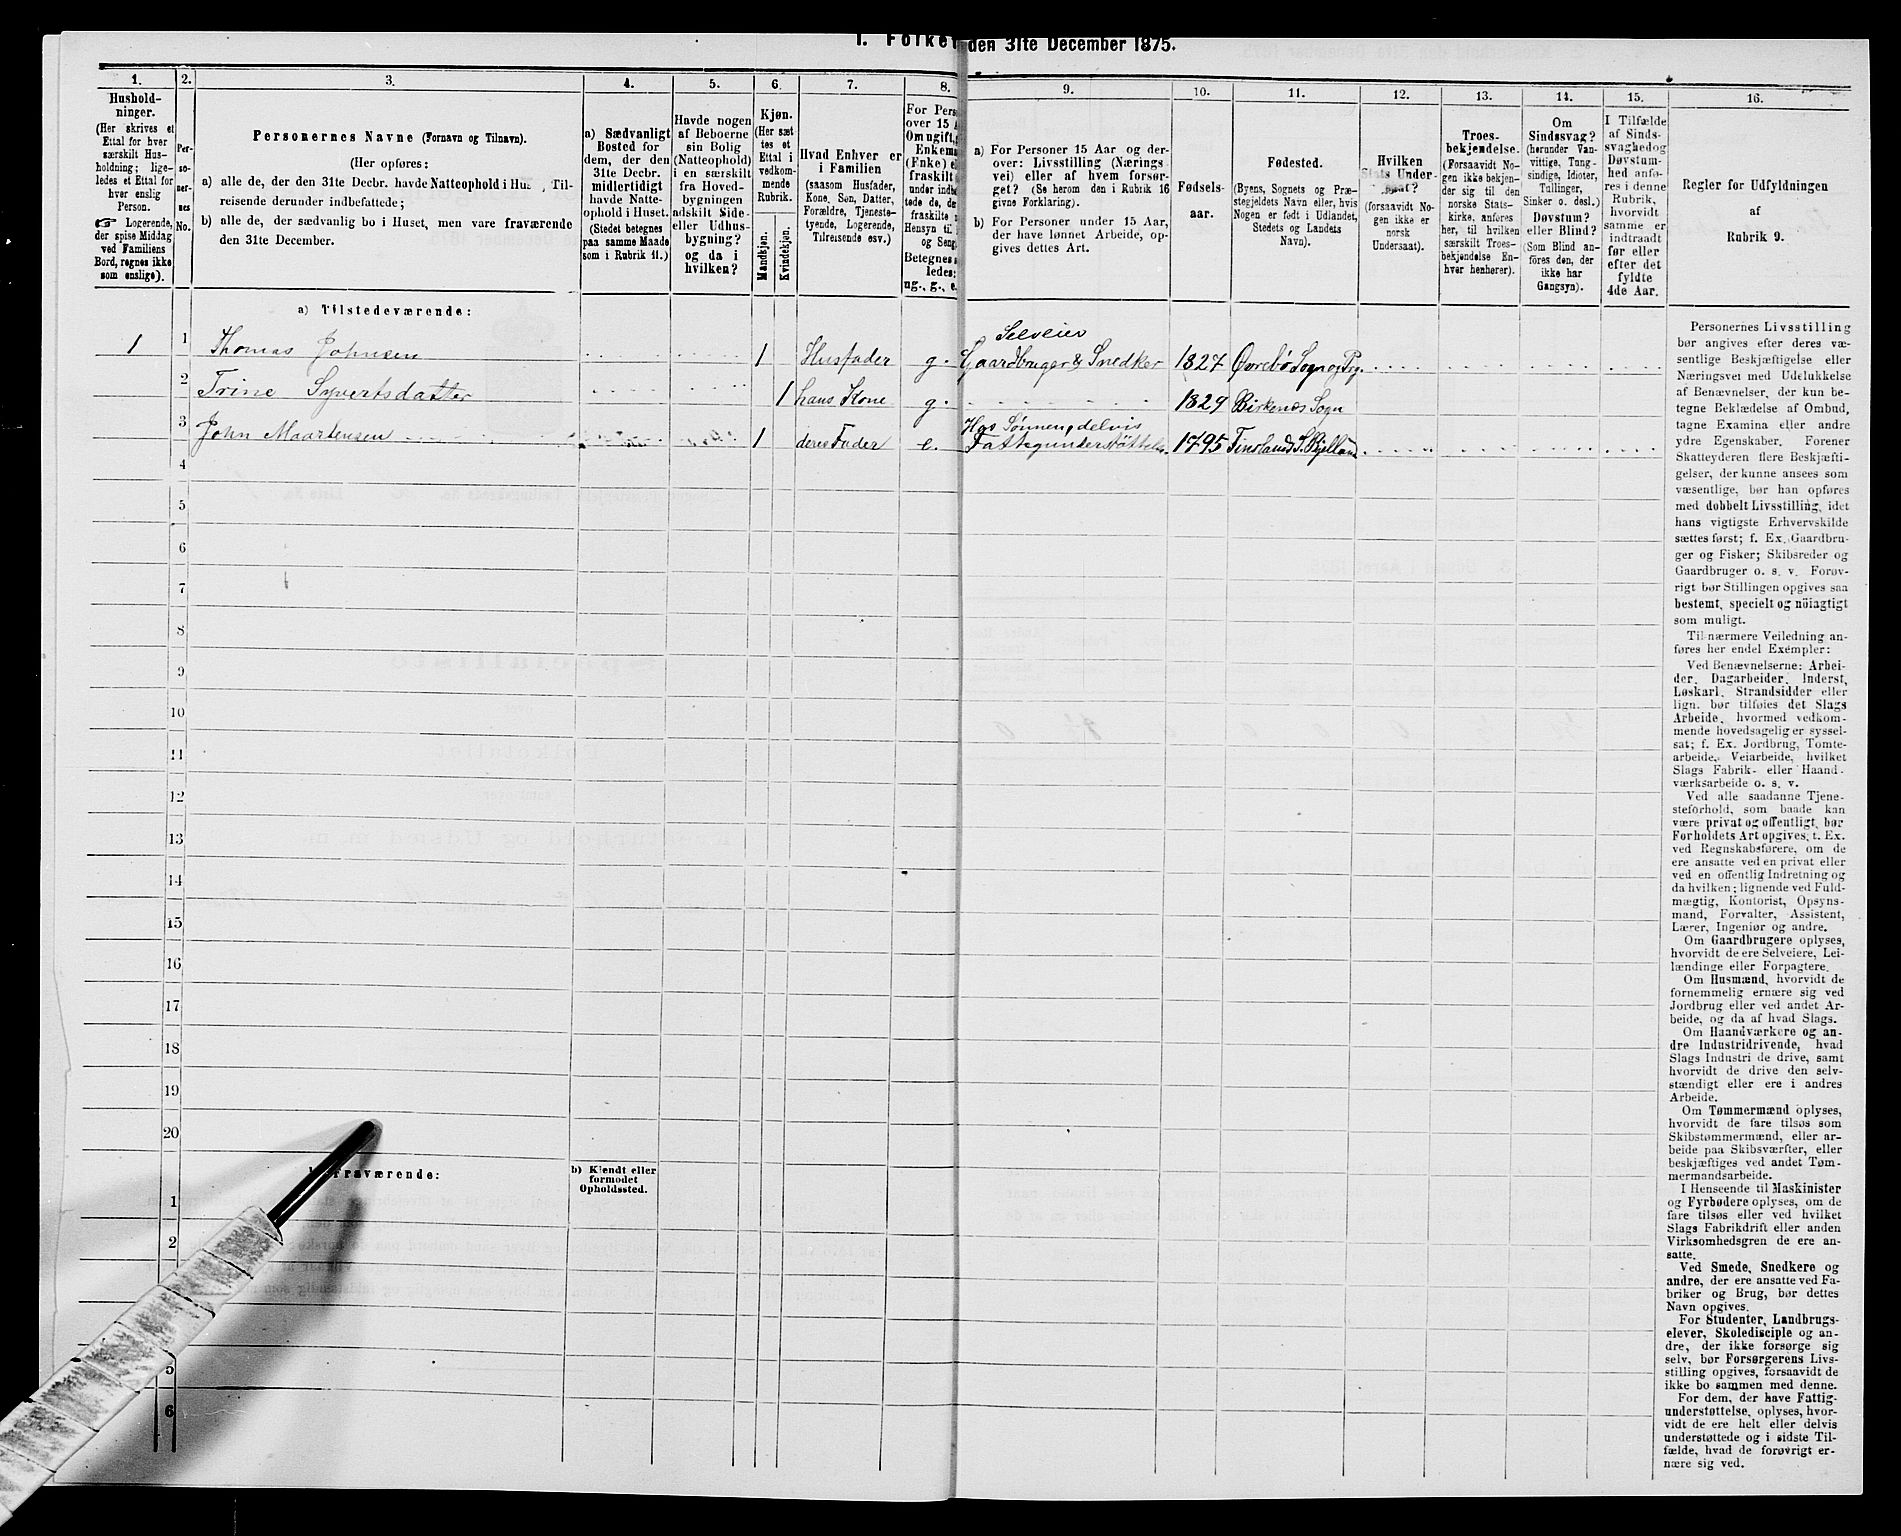 1. Folket
den 31te December 1875.
1.
2.
3.
4.
5.
6.
7.
8.
9.
10.
11.
12.
13.
14.
15.
16.
Hushold-
ninger.
(Her skrives et
Ettal for hver
særskilt Hus-
holdning; lige-
ledes et Ettal for
hver enslig
Person.
Logerende,
der spise Middag
ved Familiens
Bord, regnes ikke
som enslige).
Per-
so-
ner-
nes
No.
Personernes Navne (Fornavn og Tilnavn).
(Her opføres:
a) alle de, der den 31te Decbr. havde Natteophold i Hus, Til-
reisende derunder indbefattede;
b) alle de, der sædvanlig bo i Huset, men vare fraværende
den 31te December.
a) Sædvanligt
Bosted for
dem, der den
31te Decbr.
midlertidigt
havde Natte-
ophold i Huset.
(Stedet betegnes
paa samme Maade
som i Rubrik 11.)
Havde nogen
af Beboerne
sin Bolig
(Natteophold)
i en særskilt
fra Hoved-
bygningen
adskilt Side-
eller Udhus-
bygning?
og da i
hvilken?
Kjøn.
(Her sæt-
tes et
Ettal i
vedkom-
mende
Rubrik.
Mandkjøn.
Kvindekjøn.
Hvad Enhver er
i Familien
(saasom Husfader,
Kone, Søn, Datter,
Forældre, Tjeneste-
tyende, Logerende,
Tilreisende osv.)
For Pers
over 15 A
Om ugift,
Enkema
(Enke) e
fraskilt
under indbe
tede de, d
fraskilte
Hensyn til
og Seng
Betegnes s
ledes:
ug., g., e.
a) For Personer 15 Aar og der-
over: Livsstilling (Nærings
vei) eller af hvem forsør-
get? (Se herom den i Rubrik 16
givne Forklaring).
b) For Personer under 15 Aar,
der have lønnet Arbeide, op-
gives dettes Art.
Fødsels-
aar.
Fødested.
(Byens, Sognets og Præ-
stegjeldets Navn eller, hvis
Nogen er født i Udlandet,
Stedets og Landets
Navn).
Hvilken
Stats Under-
saat?
(forsaavidt No-
gen ikke er
norsk
Undersaat).
Troes-
bekjendelse.
(Forsaavidt No-
gen ikke bekjen-
der sig til den
norske Stats-
kirke, anføres
her, til hvilken
særskilt Troes-
bekjendelse En-
hver henhører).
Om
Sindssvag?
(herunder Van-
vittige, Tung-
sindige, Idioter,
Tullinger,
Sinker o. desl.)
Døvstum?
eller Blind?
(Som Blind an-
føres den, der
ikke har
Gangsyn).
I Tilfælde
af Sinds-
svaghed og
Døvstum-
hed anfø-
res i denne
Rubrik,
hvorvidt
samme er
indtraadt
før eller
efter det
fyldte
4de Aar.
Regler for Udfyldningen
af
Rubrik 9.
a) Tilstedeværende:
Selveier
1 1 Thomas Johnsen 1 Husfader g. Gaardbruger & Snedker 1827 Øvrebø Sogn og Prg.
2 Trine Syvertsdatter 1 hans Kone g. 1829 Birkenæs Sogn
Hos Sønnen, delvis
3 John Maartensen 1 deres Fader e. Fattigunderstøttelse. 1795 Finsland S. Bjelland
4
5
6
7
8
9
10
11
12
13
14
15
16
17
18
19
20
Fraværende:
b) Kjendt eller
formodet
Opholdssted.
1
2
5
6
Personernes Livsstilling
bør angives efter deres væ-
sentlige Beskjæftigelse eller
Næringsvei med Udelukkelse
af Benævnelser, der kun be-
tegne Beklædelse af Ombud,
tagne Examina eller andre
ydre Egenskaber. Forener
Skatteyderen flere Beskjæfti-
gelser, der kunne ansees som
væsentlige, bør han opføres
med dobbelt Livsstilling, idet
hans vigtigste Erhvervskilde
sættes først; f. Ex. Gaardbru-
ger og Fisker; Skibsreder og
Gaardbruger o. s. v. Forøv-
rigt bør Stillingen opgives saa
bestemt, specielt og nöiagtigt
som muligt.
Til nærmere Veiledning an-
føres her endel Exempler:
Ved Benævnelserne: Arbei-
der, Dagarbeider, Inderst,
Løskarl, Strandsidder eller
lign. bør tilføies det Slags
Arbeide, hvormed vedkom-
mende hovedsagelig er syssel-
sat; f. Ex. Jordbrug, Tomte-
arbeide, Veiarbeide, hvilket
Slags Fabrik- eller Haand-
værksarbeide o. s. v.
Ved alle saadanne Tjene-
steforhold, som baade kan
være privat og offentligt, bør
Forholdets Art opgives, t. Ex.
ved Regnskabsførere, om de
ere ansatte ved en privat eller
ved en offentlig Indretning og
da hvilken; lignende ved Fuld-
mægtig, Kontorist, Opsyns-
mand, Forvalter, Assistent,
Lærer, Ingeniør og andre.
Om Gaardbrugere oplyses,
hvorvidt de ere Selveiere, Lei-
lændinge eller Forpagtere.
Om Husmænd, hvorvidt de
fornemmelig ernære sig ved
Jordbrug eller ved andet Ar-
beide, og da af hvad Slags.
Om Haandværkere og an-
dre Industridrivende, hvad
Slags Industri de drive, samt
hvorvidt de drive den selv-
stændigt eller ere i andres
Arbeide.
Om Tømmermænd oplyses,
hvorvidt de fare tilsøs som
Skibstømmermænd, eller ar-
beide paa Skibsværfter, eller
beskjæftiges ved andet Tøm-
mermandsarbeide.
I Henseende til Maskinister
og Fyrbødere oplyses, om de
fare tilsøs eller ved hvilket
Slags Fabrikdrift eller anden
Virksomhedsgren de ere an-
satte.
Ved Smede, Snedkere og
andre, der ere ansatte ved Fa-
briker og Brug, bør dettes
Navn opgives.
For Studenter, Landbrugs-
elever, Skoledisciple og an-
dre, der ikke forsørge sig
selv, bør Forsørgerens Livs-
stilling opgives, forsaavidt de
ikke bo sammen med denne.
For dem, der have Fattig-
understøttelse, oplyses, hvor-
vidt de ere helt eller delvis
understøttede og i sidste Til-
fælde, hvad de forøvrigt er-
nære sig ved.